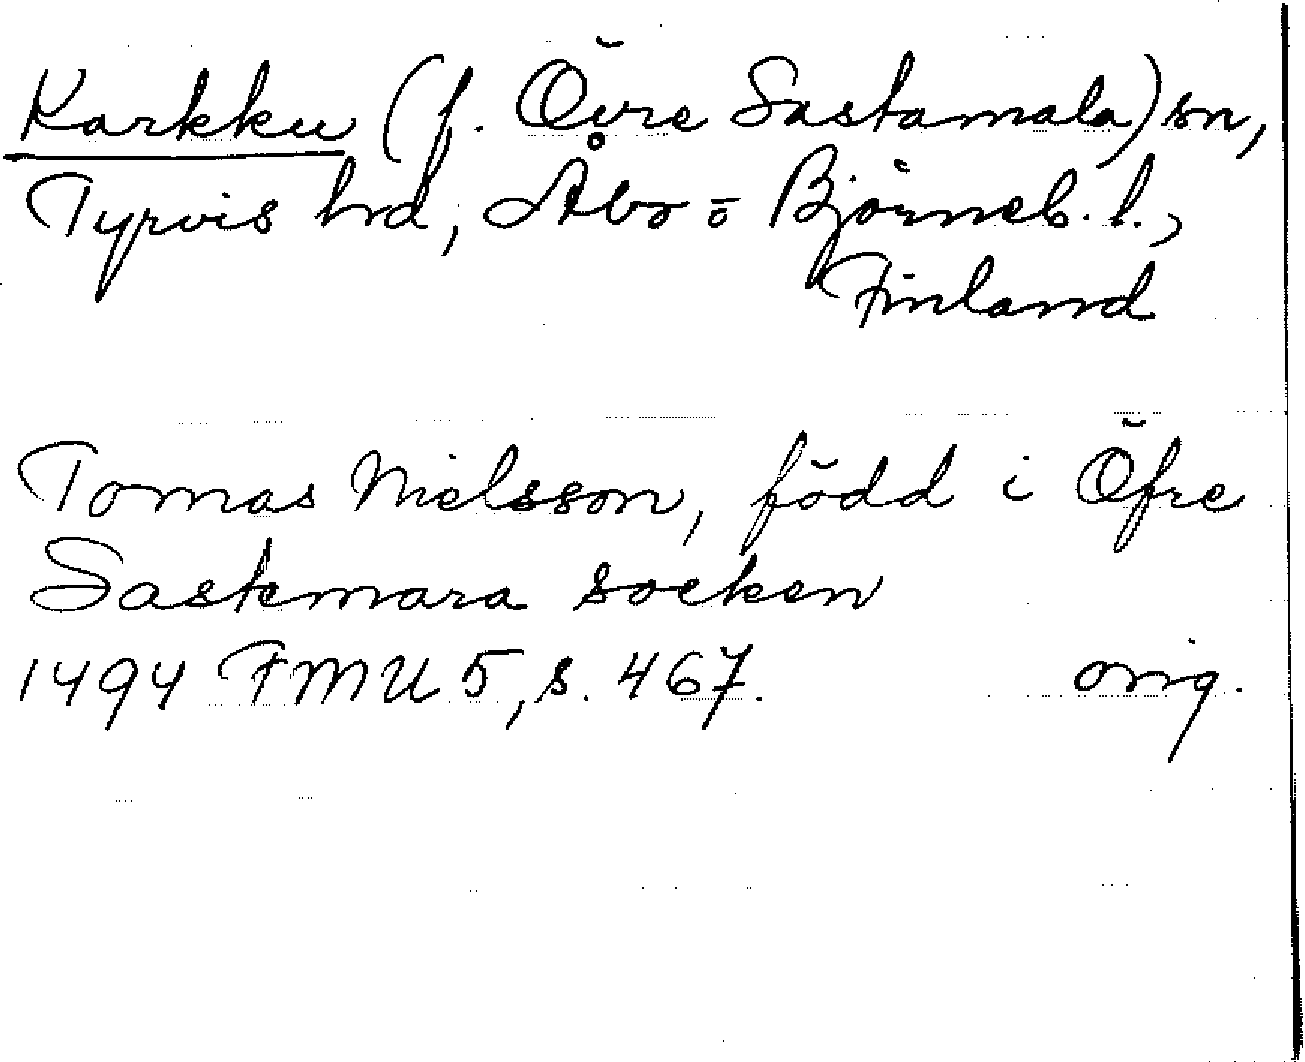 Karkku (f. Övre Sastamala) sn,
Tyrvis hrd, Åbo ō Björneb. l.,
Finland
Tomas Nielsson, född i Öfre
Sastemara socken
1494 FMU 5, s. 467. orig.